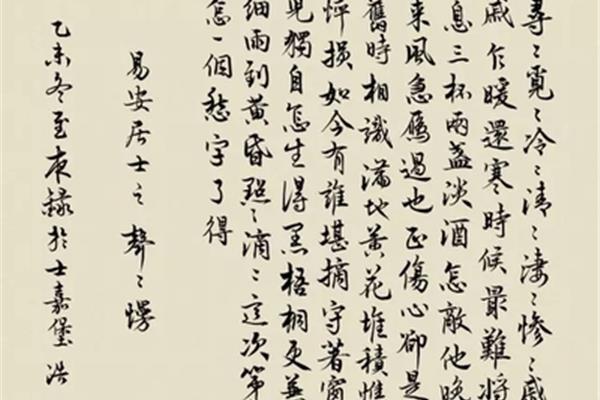 尋〻覓〻冷〻清〻淒〻慘〻戚
戚乍暖還寒時候最難將
息三杯兩盞淡酒怎敵他晚
來風急雁過也正傷心卻是
舊時相識滿地黃花堆積憔
悴損如今有誰堪摘守著窗
兒獨自怎生得黑梧桐更兼
細雨到黃昏點〻滴〻這次第
怎一個愁字了得
易安居士之聲〻慢
乙未冬至夜錄於士嘉堡浩